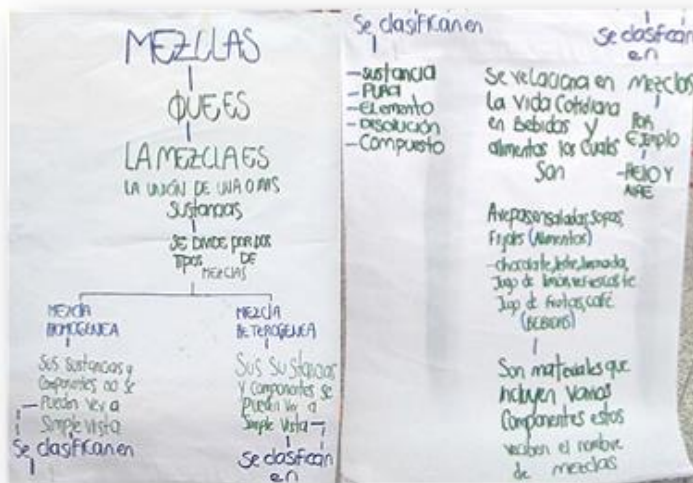 MEZCLAS
QUE ES
LA MEZCLA ES
LA UNIÓN DE UNA O MAS
Sustancias
SE DIVIDE POR DOS
TIPOS DE
MEZCLAS
MEZCLA
HOMOGENEA
Sus sustancias y
Componentes no se
Pueden ver a
Simple vista
Se clasifican en
MEZCLA
HETEROGENEA
Sus Sustancias
y componentes se
Pueden ver a
Simple vista
Se clasifican
en
Se clasifican en
- Sustancia
- PURA
- Elemento
- DISOLUCIÓN
- Compuesto
Se relaciona en
La vida Cotidiana
en Bebidas y
alimentos los cuales
Son
Arepas, ensaladas, sopas,
Frijoles (Alimentos)
- chocolate, leche, limonada,
Jugo de limón, refrescos, te
Jugo de frutas, café
(BEBIDAS)
Son materiales que
incluyen varios
Componentes estos
reciben el nombre
de mezclas
Se clasifican
en
MEZCLAS
POR
EJEMPLO
Y
AIRE